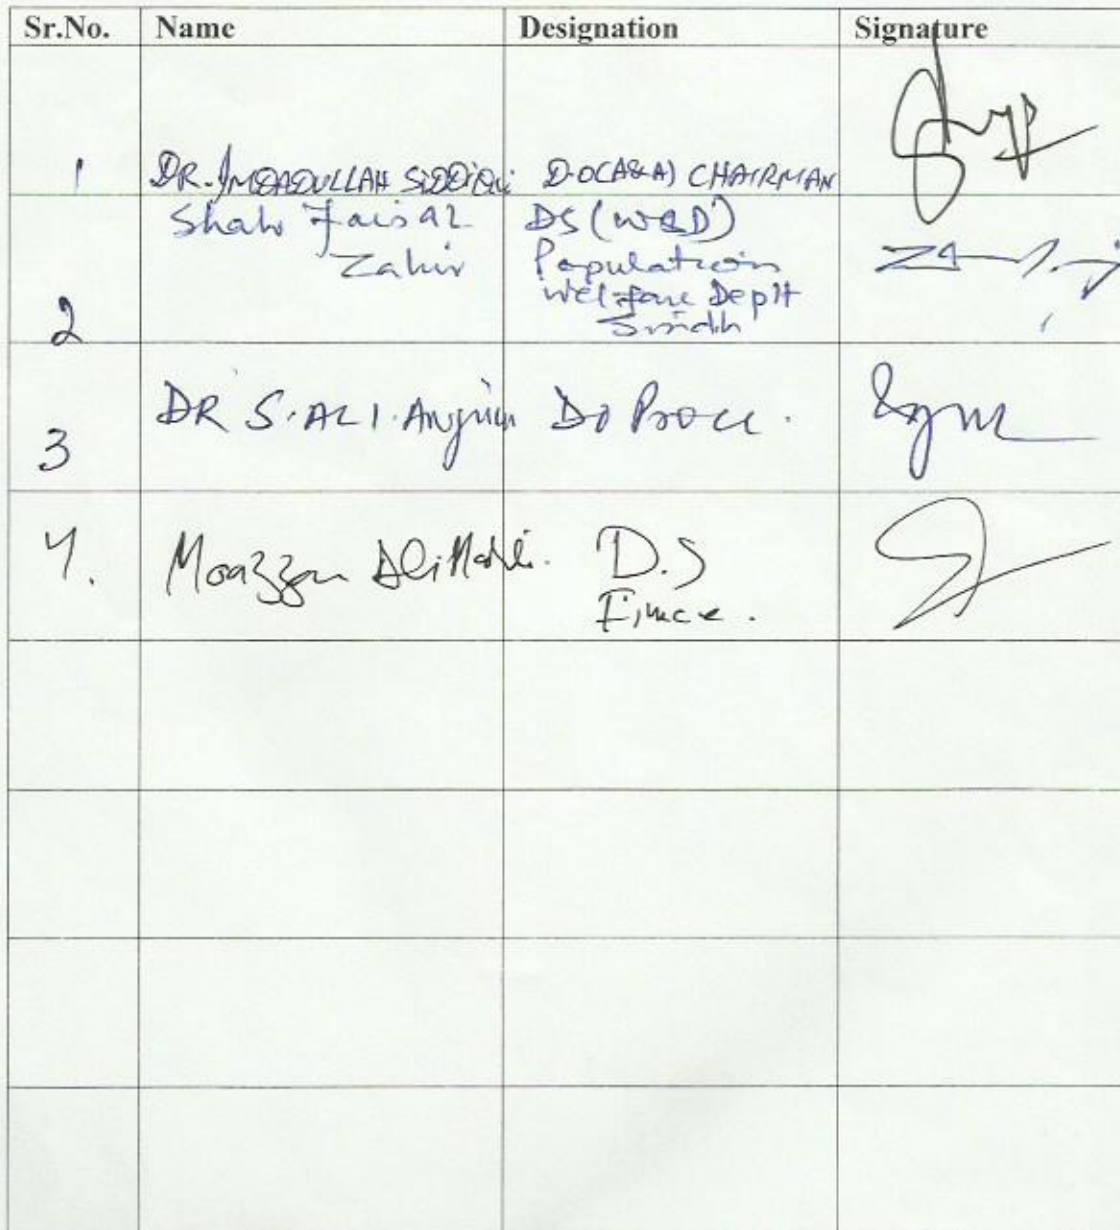 Sr.No. Name Designation Signature
1 DR. IMDADULLAH SIDDIQUI D.O(A&A) CHAIRMAN
Shah Faisal DS (W&D)
Zahir Population
Welfare Deptt
2 Sindh
DR S. ALI. Anjum Do Procu.
3
4. Moazzam Ali D.S
Finance.